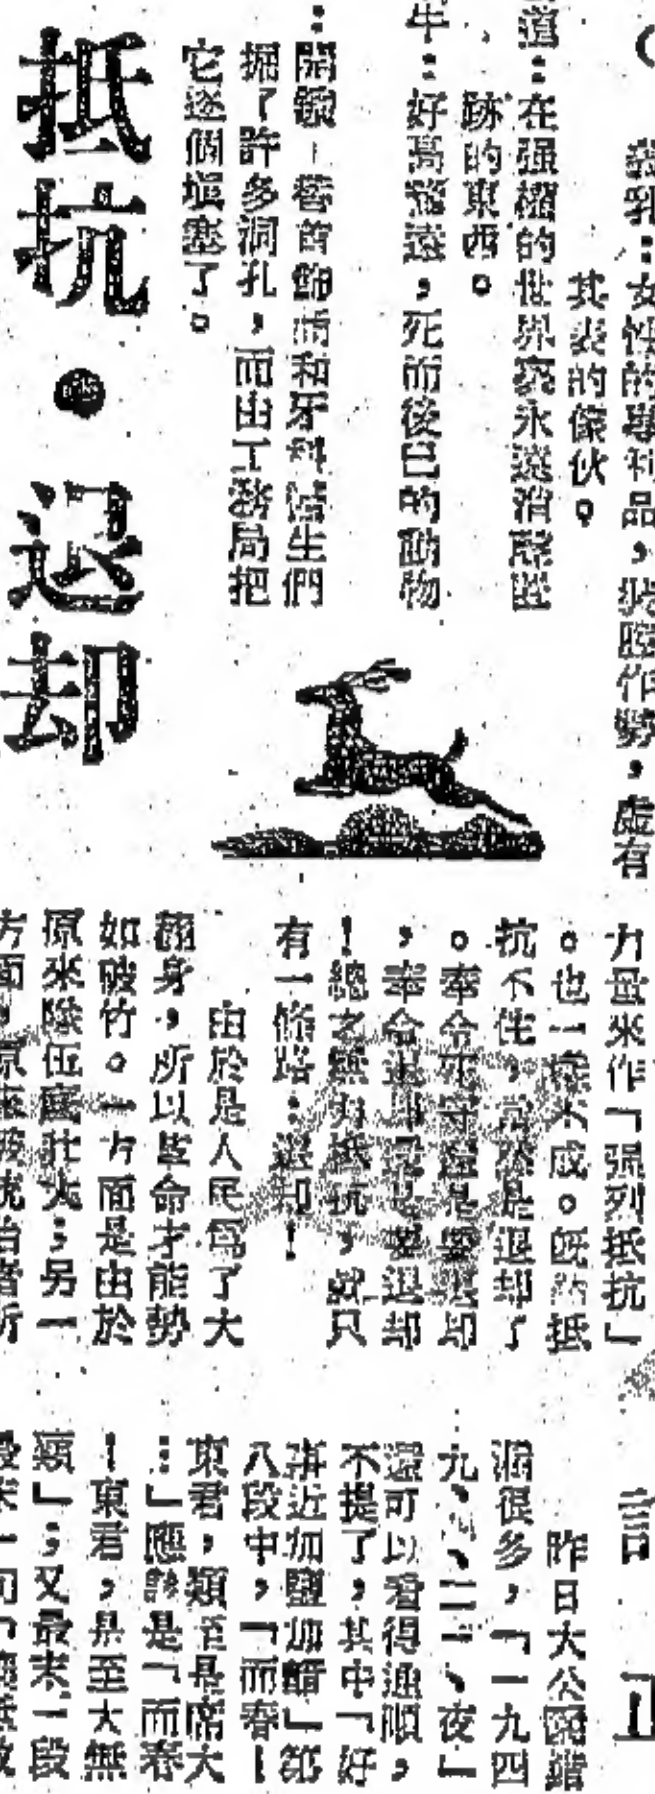 義乳：女性的專利品，裝腔作勢，虛有
其表的傢伙。
道：在强權的世界裏永遠消聲匿
跡的東西。
牛：好高騖遠，死而後已的動物
：開鑛—替首飾店和牙科醫生們
掘了許多洞孔，而由工務局把
它逐個塡塞了。
抵抗・退却
力量來作「强烈抵抗」
。也一樣不成。旣然抵
抗不住，當然是退却了
。奉令死守還是要退却
，奉命退却更要退却
！總之無力抵抗，就只
有一條路：退却！
由於是人民爲了大
翻身，所以革命才能勢
如破竹。一方面是由於
原來隊伍龐壯大；另一
方面，原來被統治者所
言
正
昨日大公園錯
漏很多，「一九四
九、、二二、夜」
還可以看得通順，
不提了，其中「好
事近加鹽加醋」第
八段中，「而春—
東君，類至是席大
…」應該是「而春
—東君，是至大無
類」；又最末一段